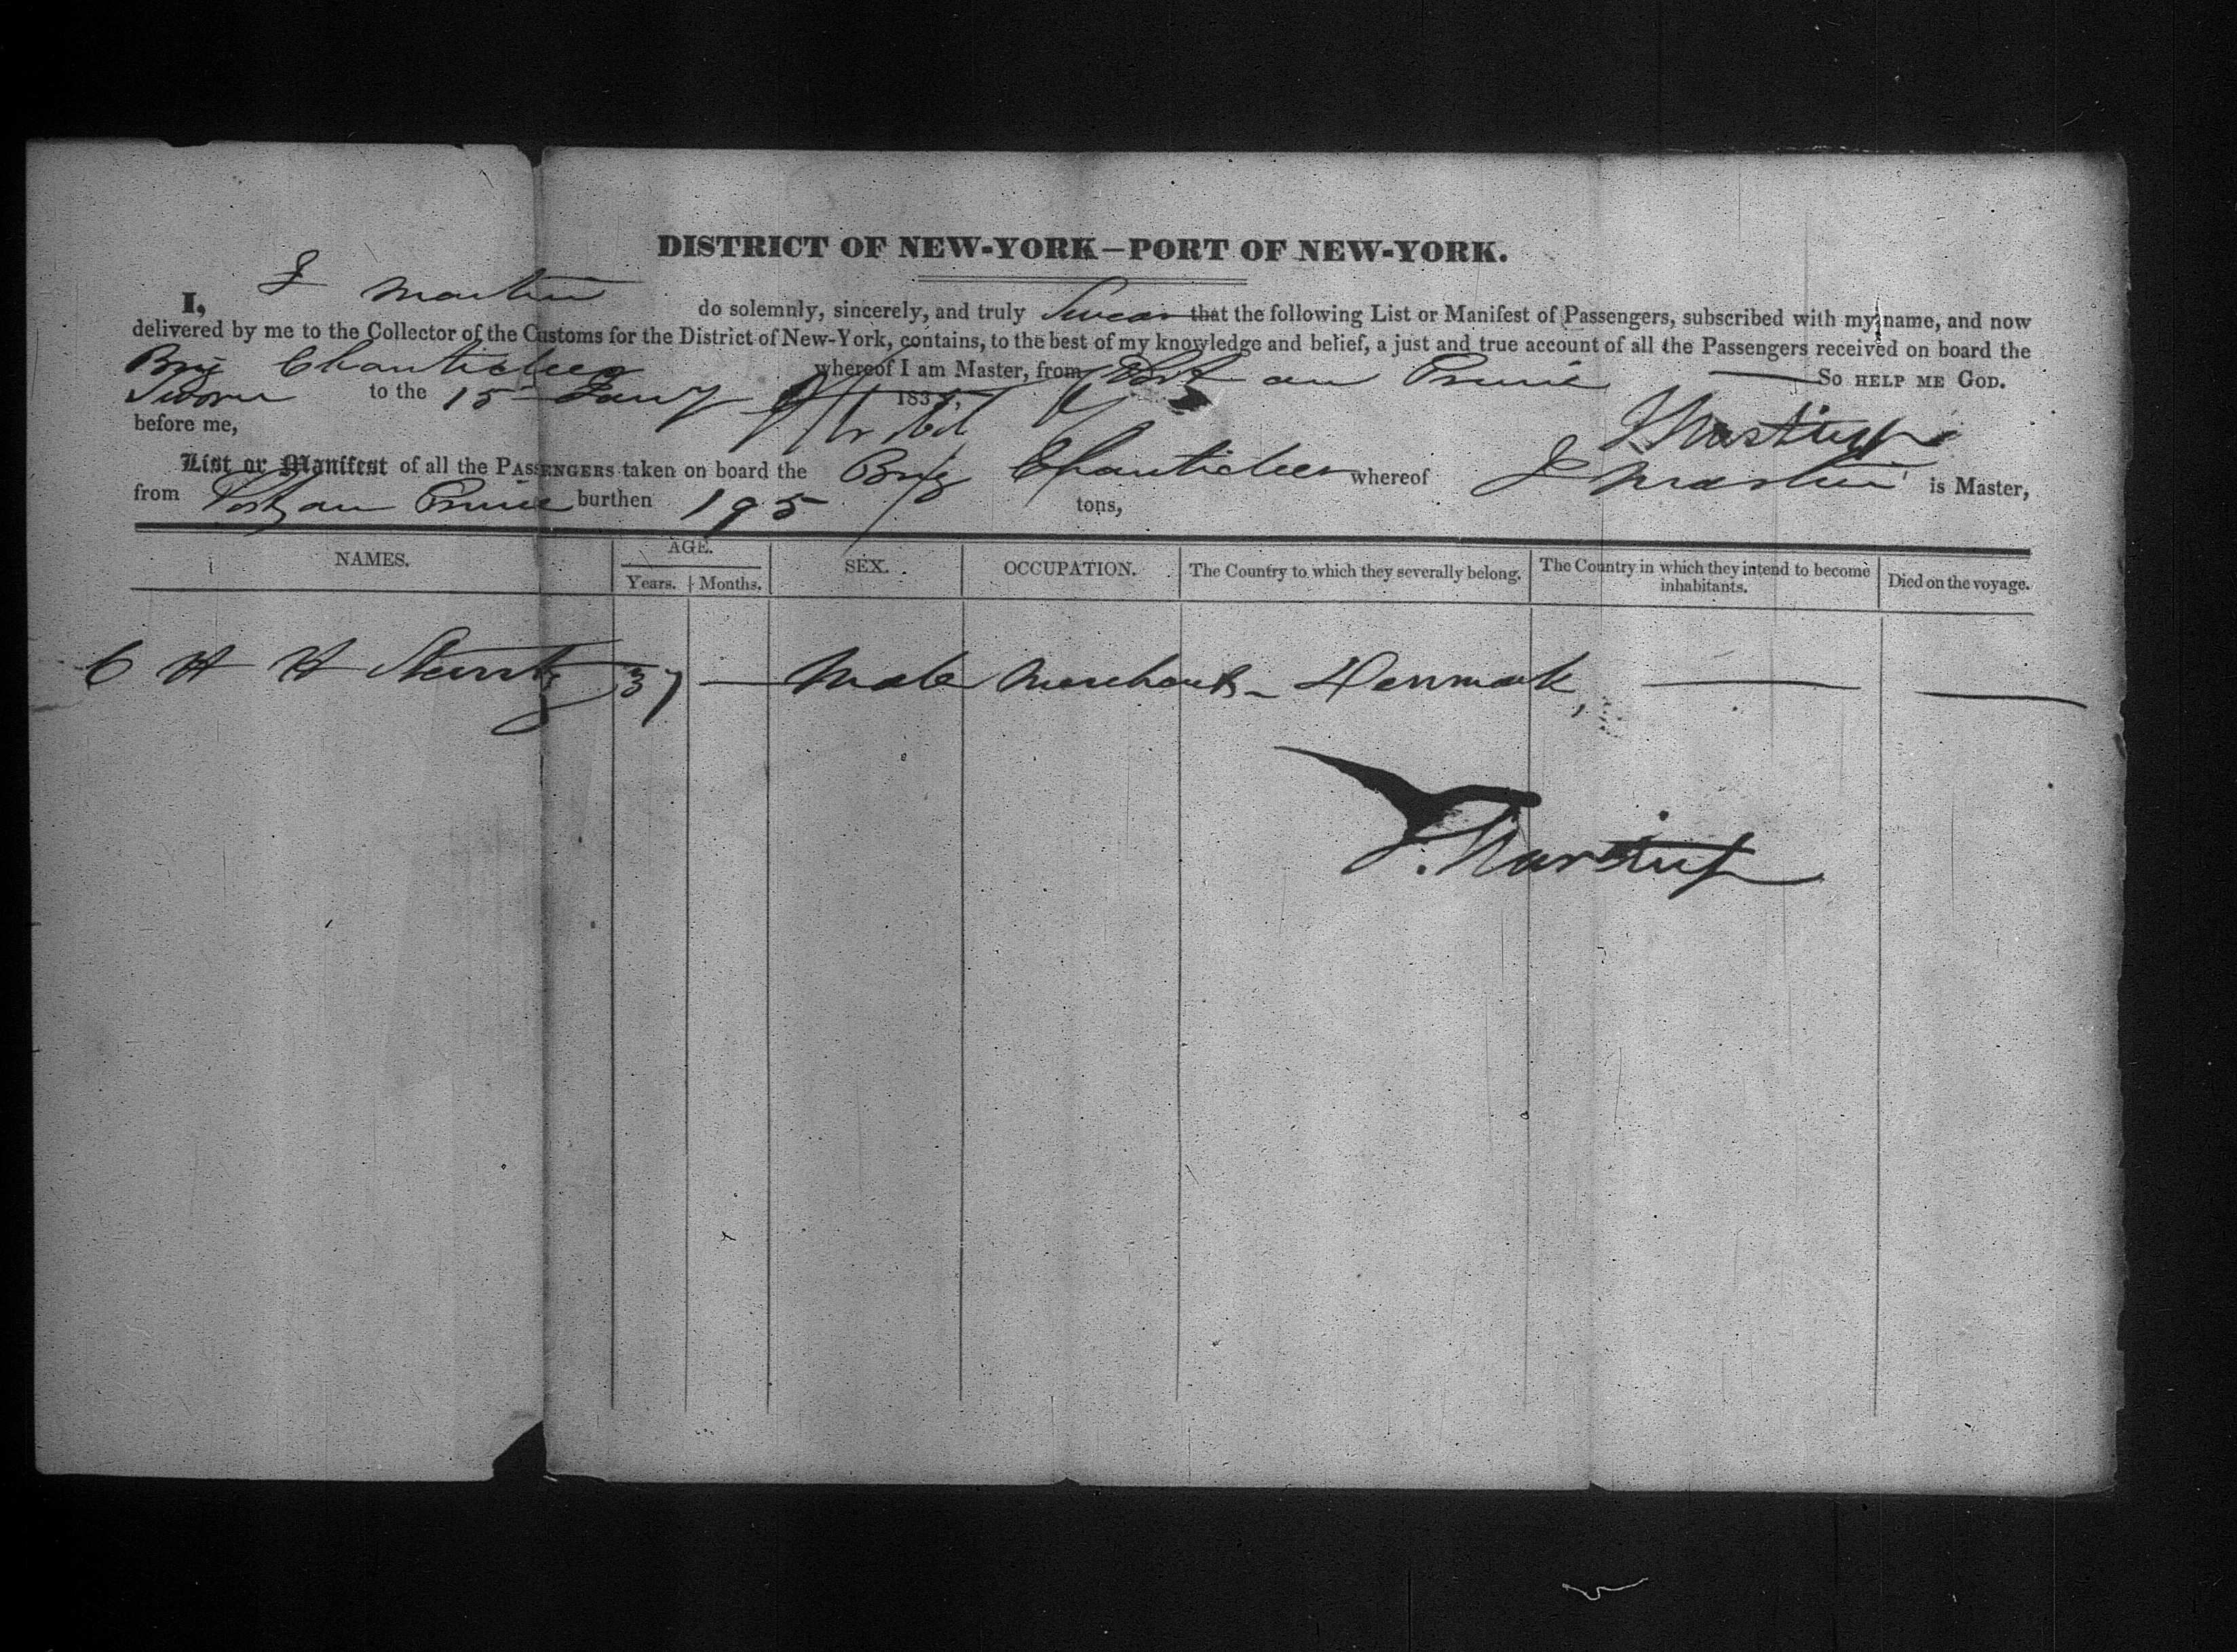 DISTRICT OF NEW-YORK—PORT OF NEW-YORK.
I, J Martin do solemnly, sincerely, and truly Swear that the following List or Manifest of Passengers, subscribed with my name, and now
delivered by me to the Collector of the Customs for the District of New-York, contains, to the best of my knowledge and belief, a just and true account of all the Passengers received on board the
Brig Chanticleer whereof I am Master, from Port au Prince So HELP ME GOD.
Sworn to the 15 Jany 183
before me, J Martin
List or Manifest of all the PASSENGERS taken on board the Brig Chanticleer whereof J Martin is Master,
from Port au Prince burthen 195 tons,
NAMES. AGE. Years. Months. SEX. OCCUPATION. The Country to which they severally belong. The Country in which they intend to become inhabitants. Died on the voyage.
C H H 37 — Male Merchant — Denmark, — —
J. Martin